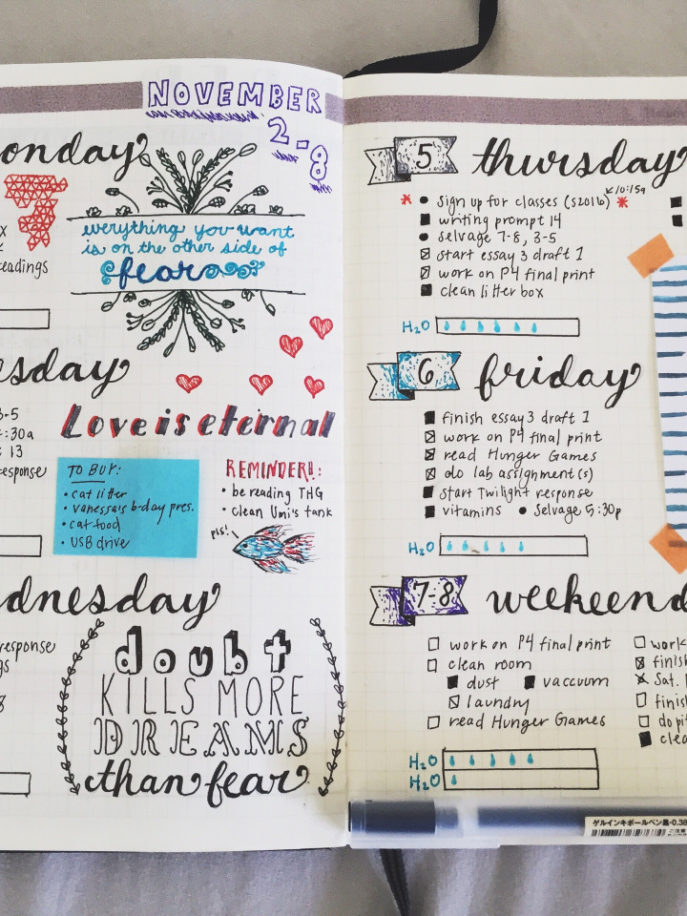 NOVEMBER
2-8
onday
everything you want
is on the other side of
fear
eadings
sday
3-5
:30a
13
response
Love is eternal
TO BUY:
• cat litter
• vanessa's b-day pres.
• cat food
• USB drive
REMINDER!!:
• be reading THG
• clean Umi's tank
pls!
dnesday
response
gs
doubt
KILLS MORE
DREAMS
than fear
5 thursday
10:15a
* • sign up for classes (S2016) *
writing prompt 14
• selvage 7-8, 3-5
start essay 3 draft 1
work on P4 final print
clean litter box
H2O
6 friday
finish essay 3 draft 1
work on P4 final print
read Hunger Games
do lab assignment(s)
start Twilight response
vitamins • Selvage 5:30p
H2O
7-8 weekend
work on P4 final print
clean room
dust vaccuum
laundry
read Hunger Games
H2O
H2O
work
finish
Sat.
finis
do pi
clea
ゲルインキボールペン黒・0.38